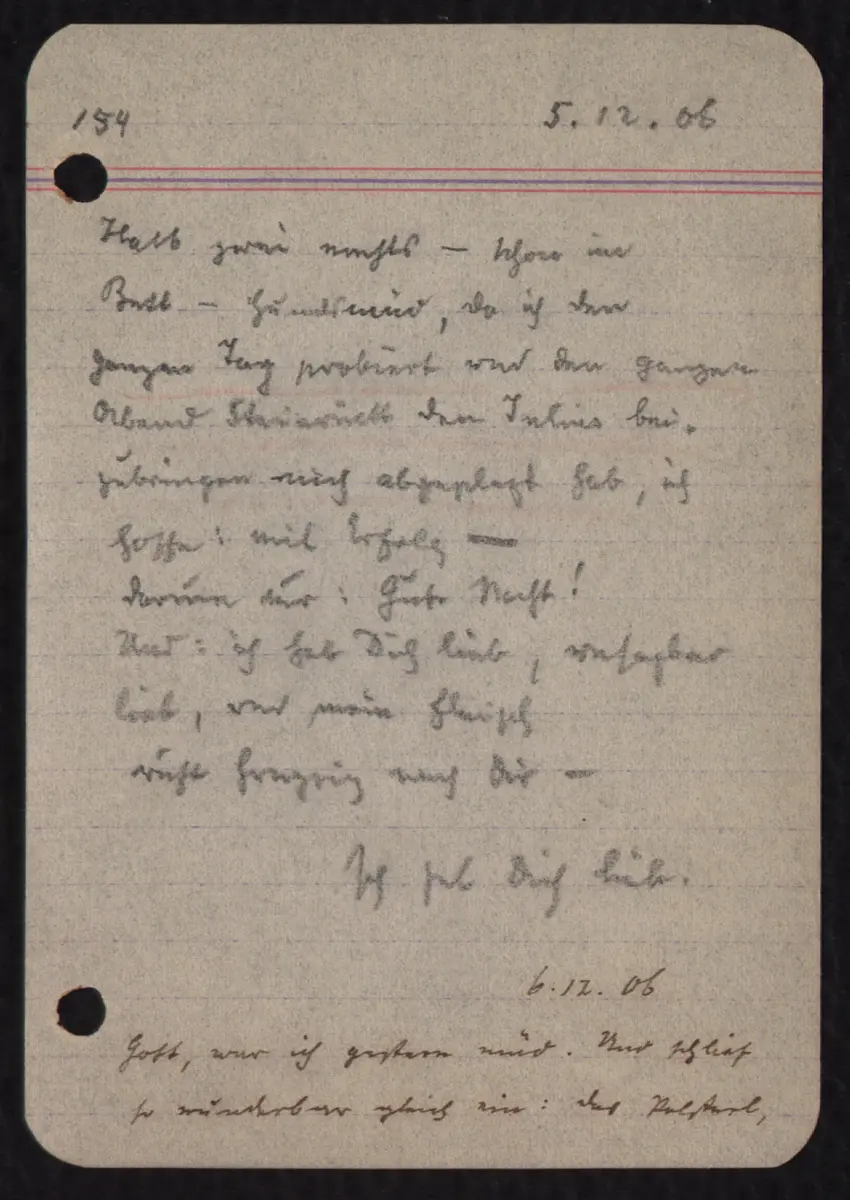 184
5.12.06
Halb zwei nachts – schon im
Bett – hundsmüd, da ich den
ganzen Tag probiert und den ganzen
Abend Steinrück den Julius bei-
zubringen mich abgeplagt hab, ich
hoffe: mit Erfolg —
darum nur: Gute Nacht!
Und: ich hab Dich lieb, unsagbar
lieb, und mein Fleisch
ruft hungrig nach Dir –
Ich hab Dich lieb.
6.12.06
Gott, war ich gestern müd. Und schlief
so wunderbar gleich ein: das Polsterl,